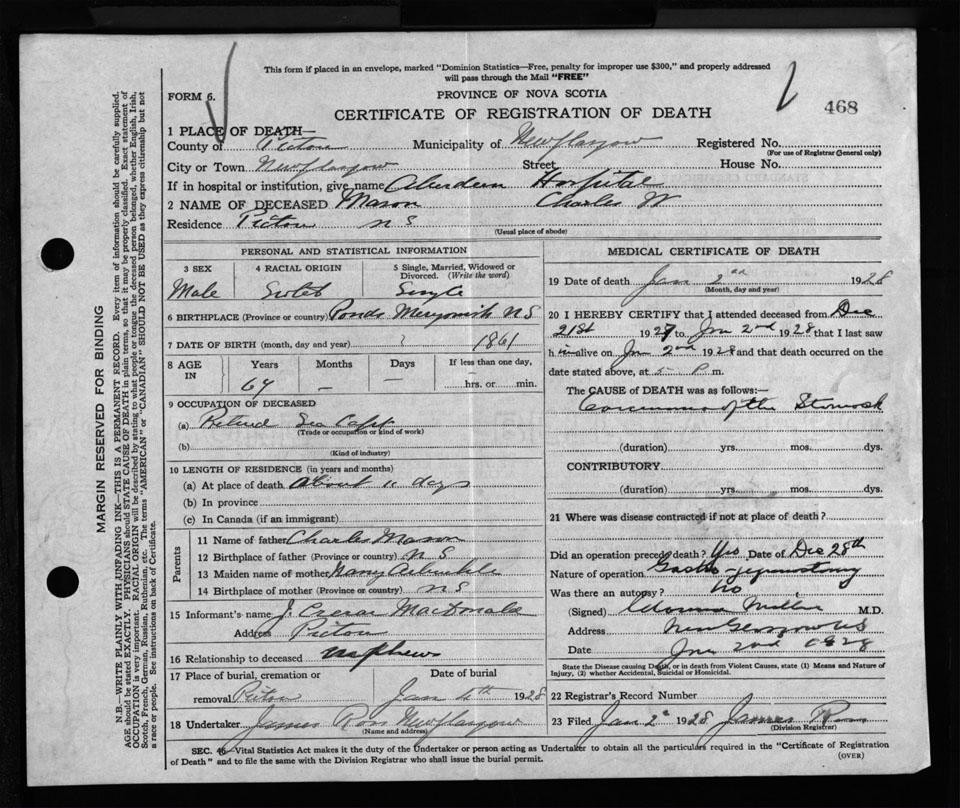 This form if placed in an envelope, marked "Dominion Statistics—Free, penalty for improper use $300," and properly addressed
will pass through the Mail "FREE"
FORM 6.
PROVINCE OF NOVA SCOTIA
468
CERTIFICATE OF REGISTRATION OF DEATH
1 PLACE OF DEATH—
County of Pictou Municipality of New Glasgow Registered No.
(For use of Registrar General only)
City or Town New Glasgow Street House No.
If in hospital or institution, give name Aberdeen Hospital
2 NAME OF DECEASED Mason Charles W
Residence Pictou N S
(Usual place of abode)
PERSONAL AND STATISTICAL INFORMATION
3 SEX 4 RACIAL ORIGIN 5 Single, Married, Widowed or Divorced. (Write the word)
Male Scotch Single
6 BIRTHPLACE (Province or country) Ponds Merigomish N S
7 DATE OF BIRTH (month, day and year) ? 1861
8 AGE IN Years Months Days If less than one day,
67 — — hrs. or min.
9 OCCUPATION OF DECEASED
(a) Retired Sea Capt
(Trade or occupation or kind of work)
(b)
(Kind of industry)
10 LENGTH OF RESIDENCE (in years and months)
(a) At place of death About 11 days
(b) In province
(c) In Canada (if an immigrant)
Parents
11 Name of father Charles Mason
12 Birthplace of father (Province or country) N S
13 Maiden name of mother Nancy Arbuckle
14 Birthplace of mother (Province or country) N S
15 Informant's name J. Caesar MacDonald
Address Pictou
16 Relationship to deceased Nephew
17 Place of burial, cremation or Date of burial
removal Pictou Jan 4th 1928
18 Undertaker James Ross New Glasgow
(Name and address)
MEDICAL CERTIFICATE OF DEATH
19 Date of death Jan 2nd 1928
(Month, day and year)
20 I HEREBY CERTIFY that I attended deceased from Dec
21st 1927 to Jan 2nd 1928 that I last saw
him alive on Jan 2nd 1928 and that death occurred on the
date stated above, at 5 P m.
The CAUSE of DEATH was as follows:—
Carcinoma of the Stomach
(duration) yrs. mos. dys.
CONTRIBUTORY
(duration) yrs. mos. dys.
21 Where was disease contracted if not at place of death?
Did an operation precede death? Yes Date of Dec 28th
Nature of operation Gastro-jejunostomy
Was there an autopsy? no
(Signed) Miller M.D.
Address New Glasgow NS
Date Jan 2nd 1928
State the Disease causing Death, or in death from Violent Causes, state (1) Means and Nature of
Injury, (2) whether Accidental, Suicidal or Homicidal.
22 Registrar's Record Number
23 Filed Jan 2 1928 James
(Division Registrar)
SEC. 46—Vital Statistics Act makes it the duty of the Undertaker or person acting as Undertaker to obtain all the particulars required in the "Certificate of Registration
of Death" and to file the same with the Division Registrar who shall issue the burial permit.
(OVER)
MARGIN RESERVED FOR BINDING
N.B.—WRITE PLAINLY WITH UNFADING INK—THIS IS A PERMANENT RECORD. Every item of information should be carefully supplied.
AGE should be stated EXACTLY. PHYSICIANS should STATE CAUSE OF DEATH in plain terms, so that it may be properly classified. Exact statement of
OCCUPATION is very important. RACIAL ORIGIN will be described by stating to what people or tongue the deceased person belonged, whether English, Irish,
Scotch, French, German, Russian, Ruthenian, etc. The terms "AMERICAN" or "CANADIAN" SHOULD NOT BE USED as they express citizenship but not
a race or people. See instructions on back of Certificate.